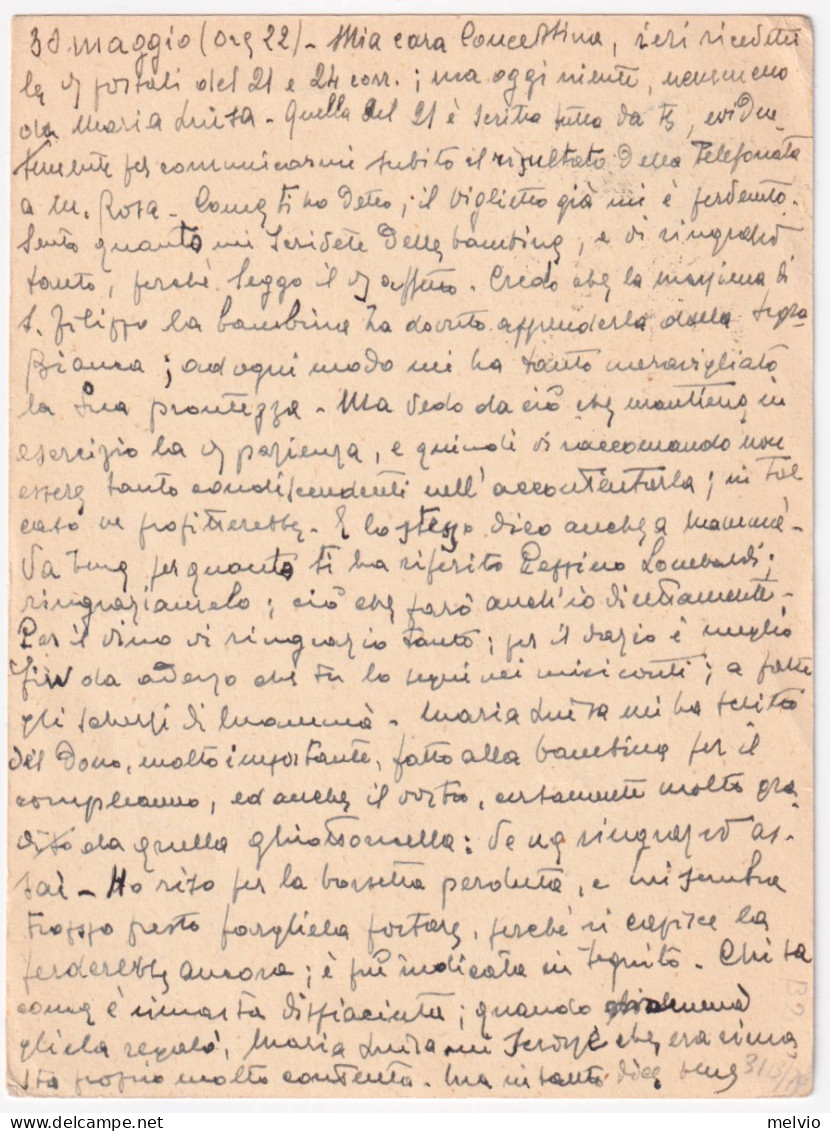 30 maggio (ore 22) - Mia cara Concettina, ieri ricevetti
le postali del 21 e 24 corr.; ma oggi niente, nemmeno
da Maria Luisa - Quella del 21 è scritta tutta da te, eviden-
temente per comunicarmi subito il risultato della telefonata
a M. Rosa - Come ti ho detto, il biglietto già mi è pervenuto.
Sento quanto mi scrivete della bambina, e vi ringrazio
tanto, perchè leggo il affetto. Credo che la massima di
S. Filippo la bambina ha dovuto apprenderla dalla
Bianca; ad ogni modo mi ha tanto meravigliato
la sua prontezza - Ma vedo da ciò che mantiene in
esercizio la pazienza, e quindi vi raccomando non
essere tanto condiscendenti nell'accontentarla; in tal
caso ne profitterebbe. E lo stesso dico anche a Mammà -
Va bene per quanto ti ha riferito Peppino Lombardi;
ringraziamelo; ciò che farò anch'io direttamente -
Per il vino vi ringrazio tanto; per il dazio è meglio
fin da adesso che tu lo segni nei miei conti; a parte
gli scherzi di Mammà - Maria Luisa mi ha scritto
del dono, molto importante, fatto alla bambina per il
compleanno, ed anche il vostro, certamente molto gra-
dito da quella ghiottoncella: Ve ne ringrazio as-
sai - Ho riso per la borsetta perduta, e mi sembra
troppo presto fargliela portare, perchè si capisce la
perderebbe ancora; è più indicata in seguito - Chi sa
come è rimasta dispiaciuta; quando Mammà
gliela regalò, Maria Luisa mi scrisse che era rima-
sta proprio molto contenta. Ma intanto dice bene